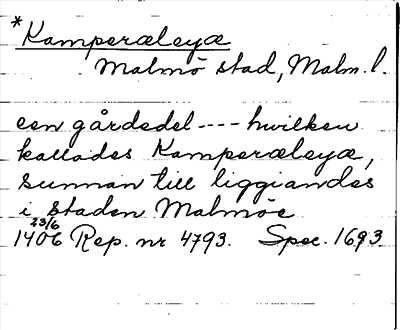 *Kamperæleyæ
Malmö stad, Malm. l.
een gårdsdel ---- hwilken
kallades Kamperæleyæ,
sunnan till liggiandes
i staden Malmöe
23/6
1406 Rep. nr 4793. Spec. 1693